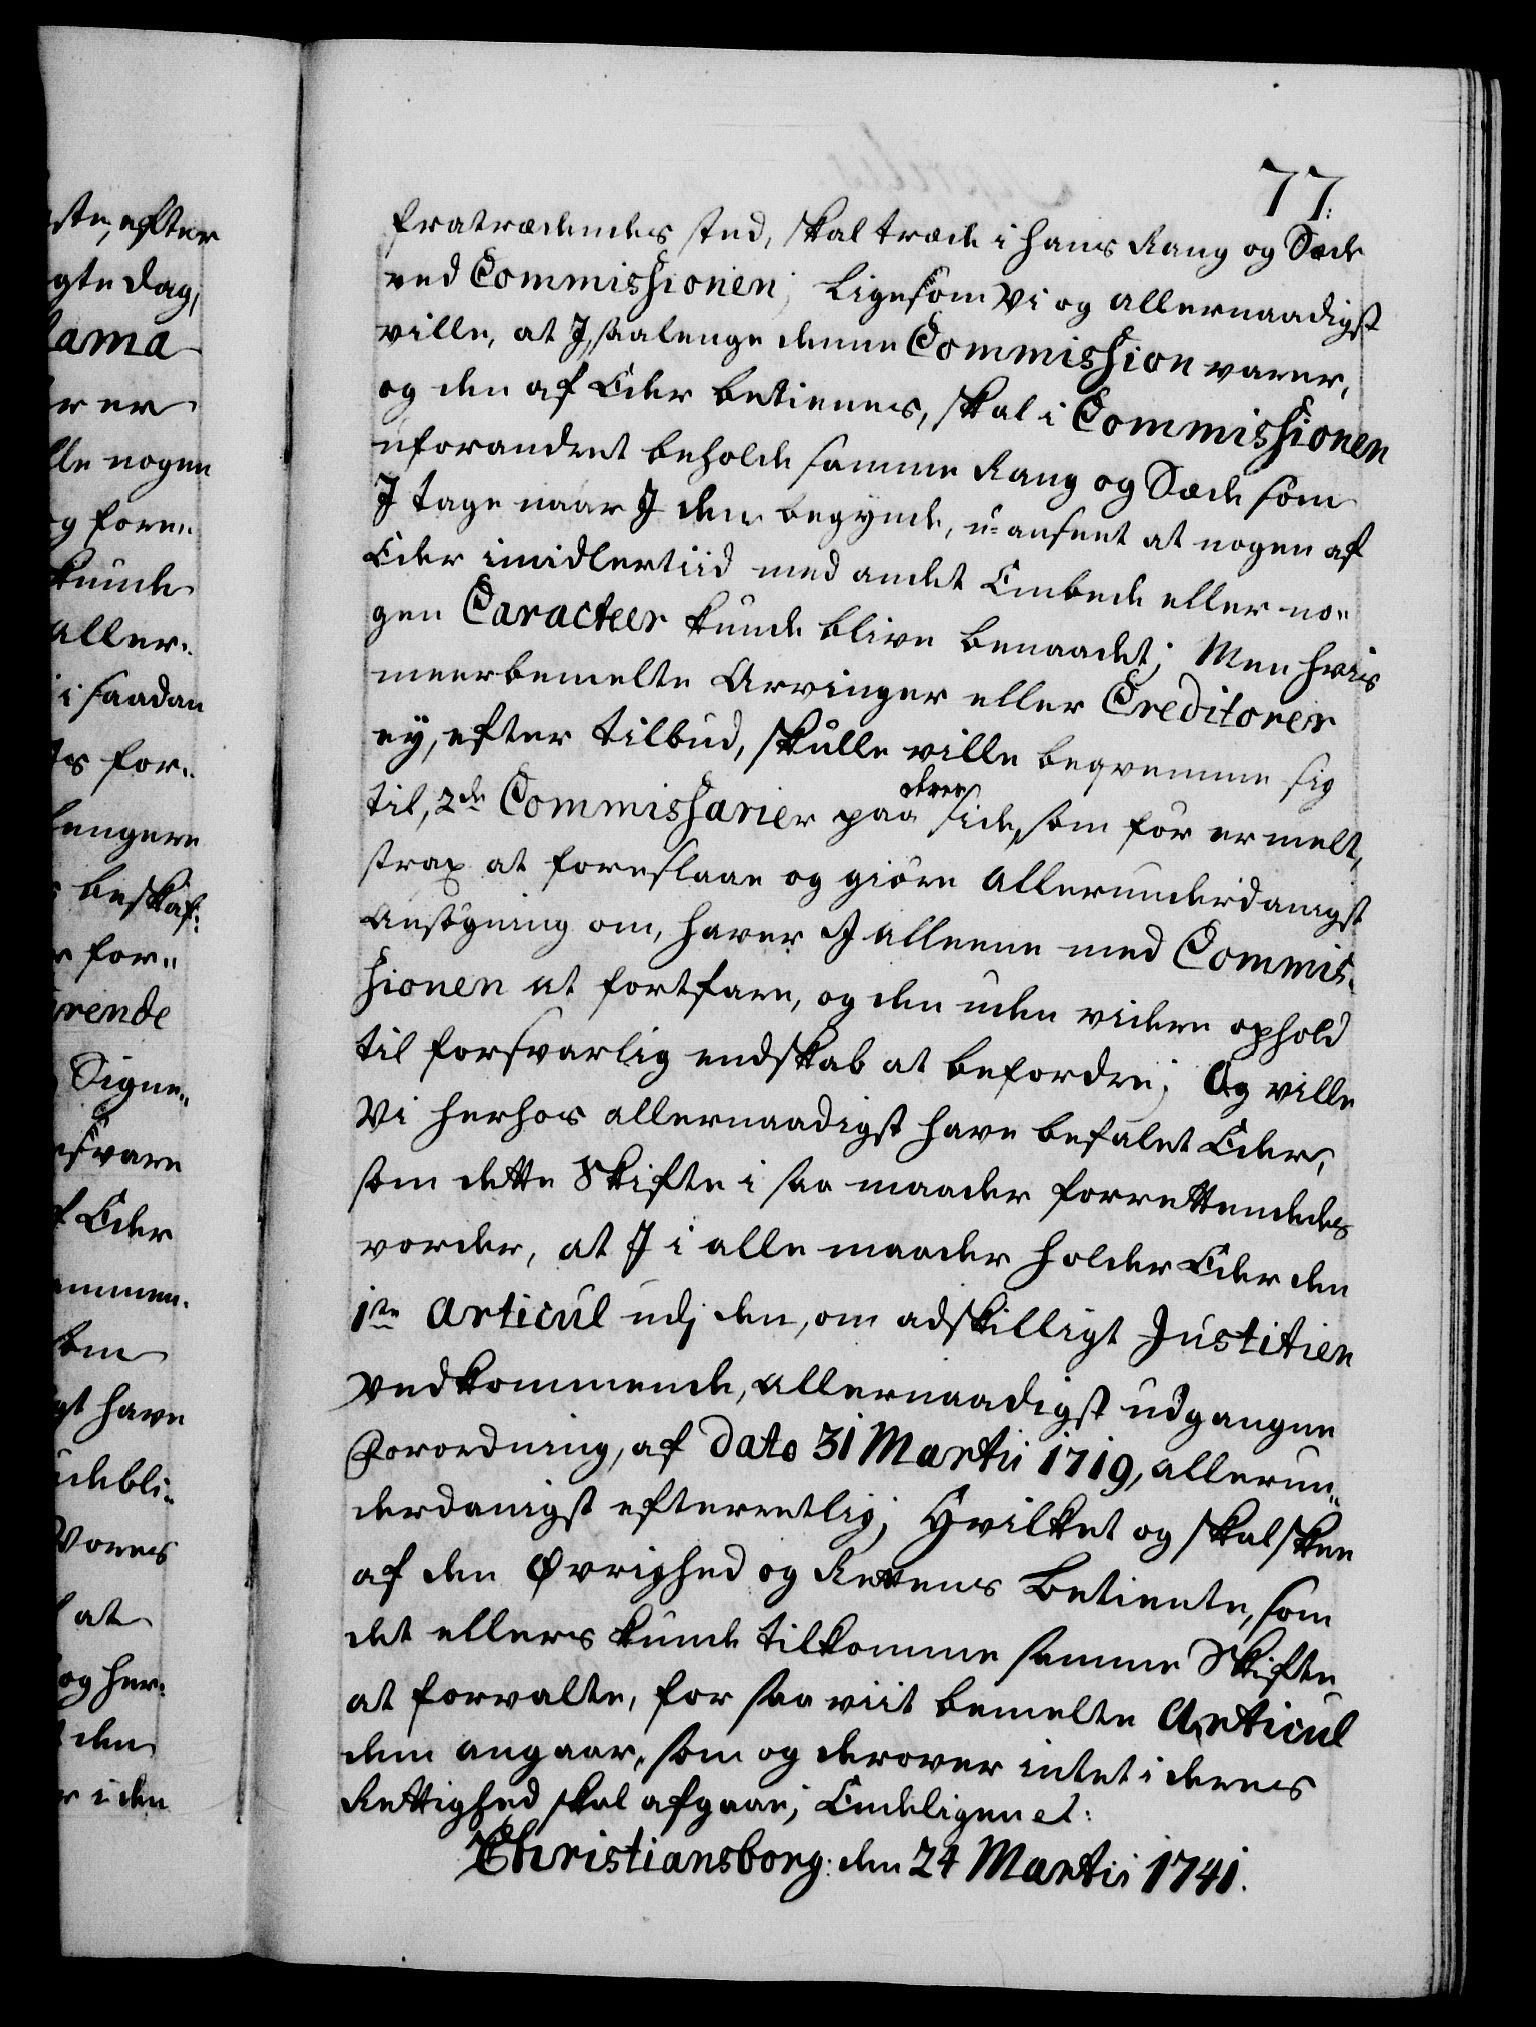 77.
fratrædendes sted, skal træde i hans Rang og Sæde
ved Commissionen; Ligesom Vi og allernaadigst
ville, at J, saalenge denne Commission varer,
og den af Eder betienes, skal i Commissionen
uforandret beholde samme Rang og Sæde som
J tage naar J den begynde, u-anseet at nogen af
Eder imidlertiid med andet Embede eller no-
gen Caracteer kunde blive benaadet; Men hvis
meerbemelte Arvinger eller Creditorer
ey, efter tilbud, skulle ville beqvemme sig
til, 2de Commissarier paa deres side, som før er melt,
strax at foreslaae og giøre allerunderdanigst
Ansøgning om, haver J alleene med Commis-
sionen at fortfare, og den uden videre ophold
til forsvarlig endskab at befordre; Og ville
Vi herhos allernaadigst have befalet Eder,
som dette Skifte i saa maader forrettendes
vorder, at J i alle maader holder Eder den
1te Articul udj den, om adskilligt Justitien
vedkommende, allernaadigst udgangne
Forordning, af dato 31 Martii 1719, allerun-
derdanigst efterretlig; Hvilket og skal skee
af den Øvrighed og Rettens Betiente, som
det ellers kunde tilkomme samme Skifte
at forvalte, for saa viit bemelte Articul
dem angaar, som og derover intet i deres
Rettighed skal afgaae; Endeligen et:
Christiansborg: den 24 Martii 1741.